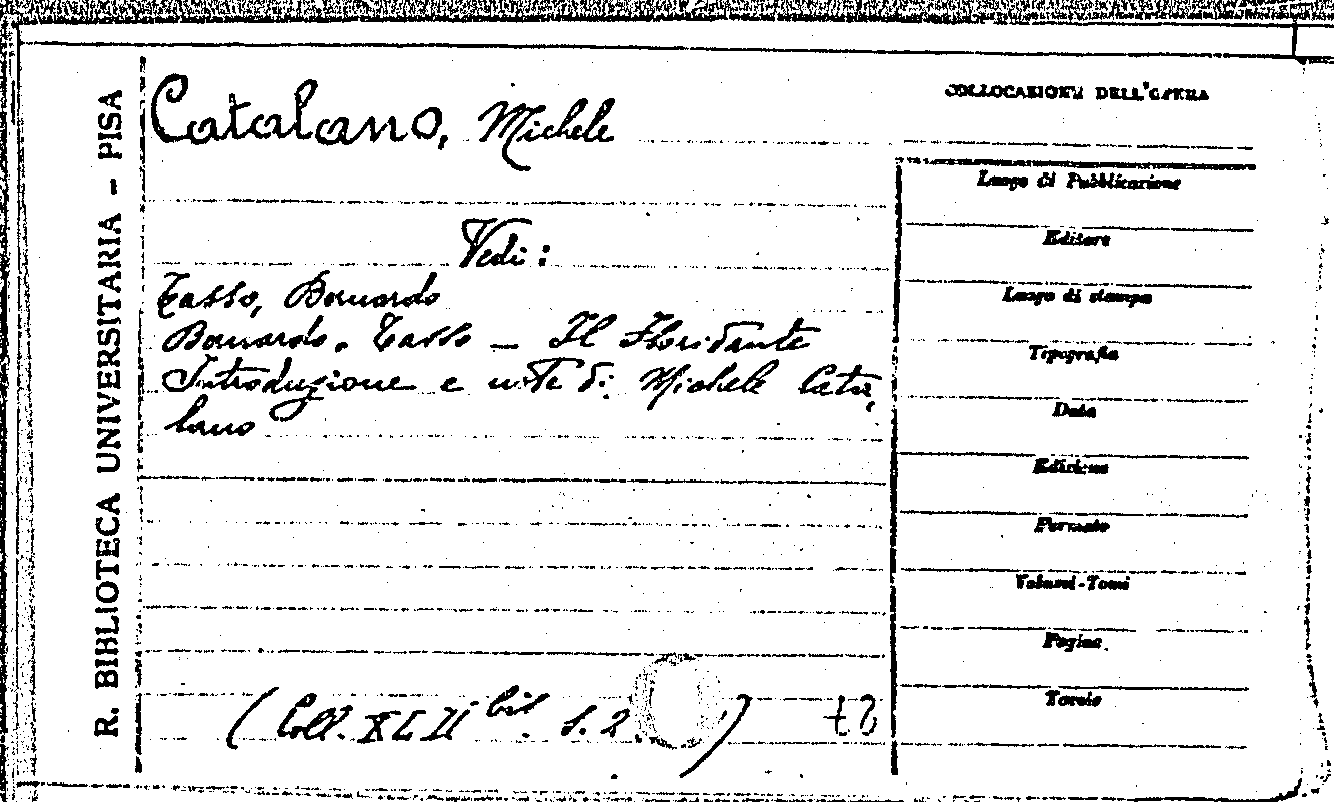 R. BIBLIOTECA UNIVERSITARIA - PISA
Catalano, Michele
Vedi:
Tasso, Bernardo
Bernardo. Tasso — Il Floridante
Introduzione e note di Michele Cata,
lano
(Coll. XLII bis. S. 2. )
COLLOCAZIONE DELL'OPERA
Luogo di Pubblicazione
Editore
Luogo di stampa
Tipografia
Data
Edizione
Formato
Volumi-Tomi
Pagine
Tomie